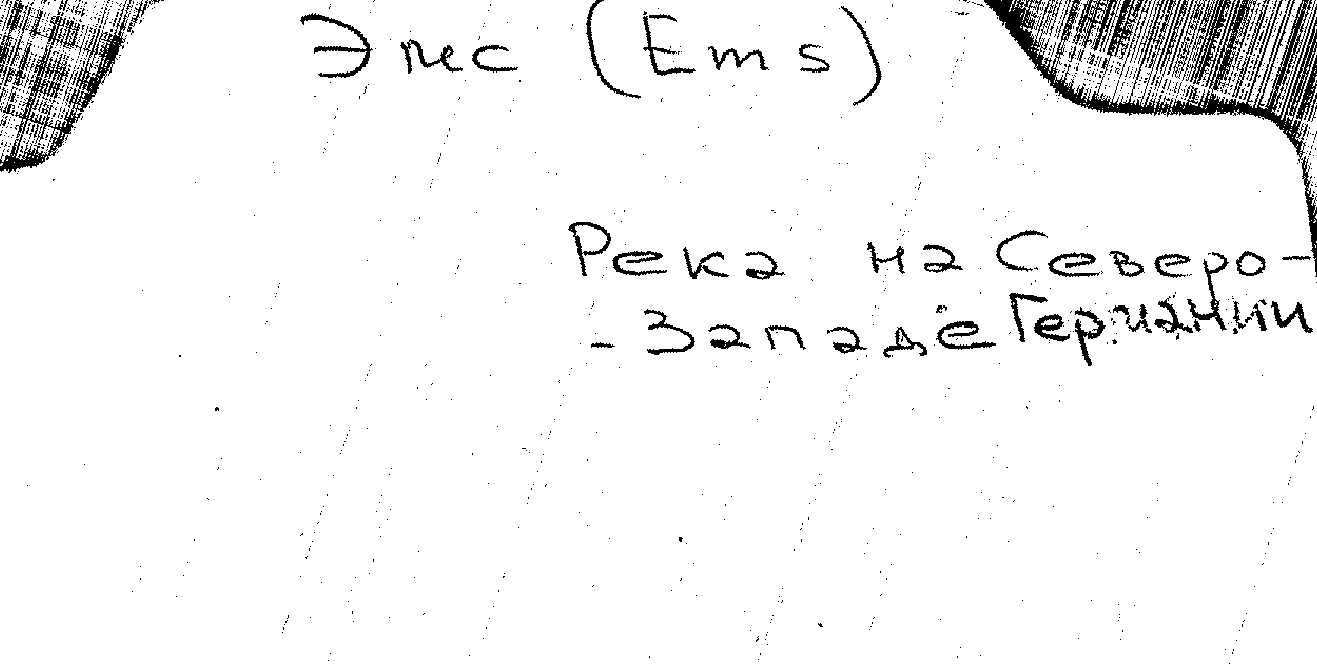 Эмс (Ems)
Река на Северо-
- Западе Германии